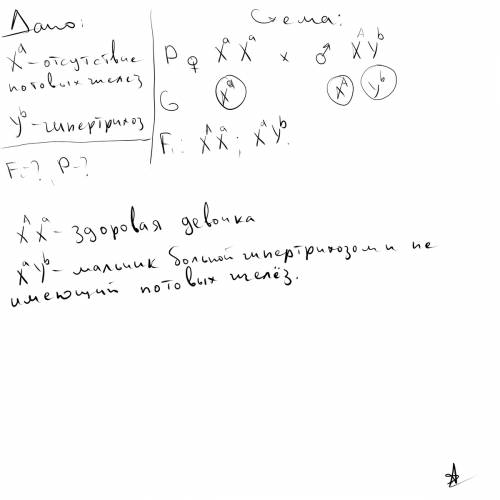 Дано:
X^a - отсутствие
потовых желез
Y^b - гипертрихоз
F₁-? P-?
Схема:
P ♀ X^a X^a x ♂ X^A Y^b
G X^a X^A Y^b
F₁: X^A X^a ; X^a Y^b.
X^A X^a - здоровая девочка
X^a Y^b - мальчик больной гипертрихозом и не
имеющий потовых желёз.